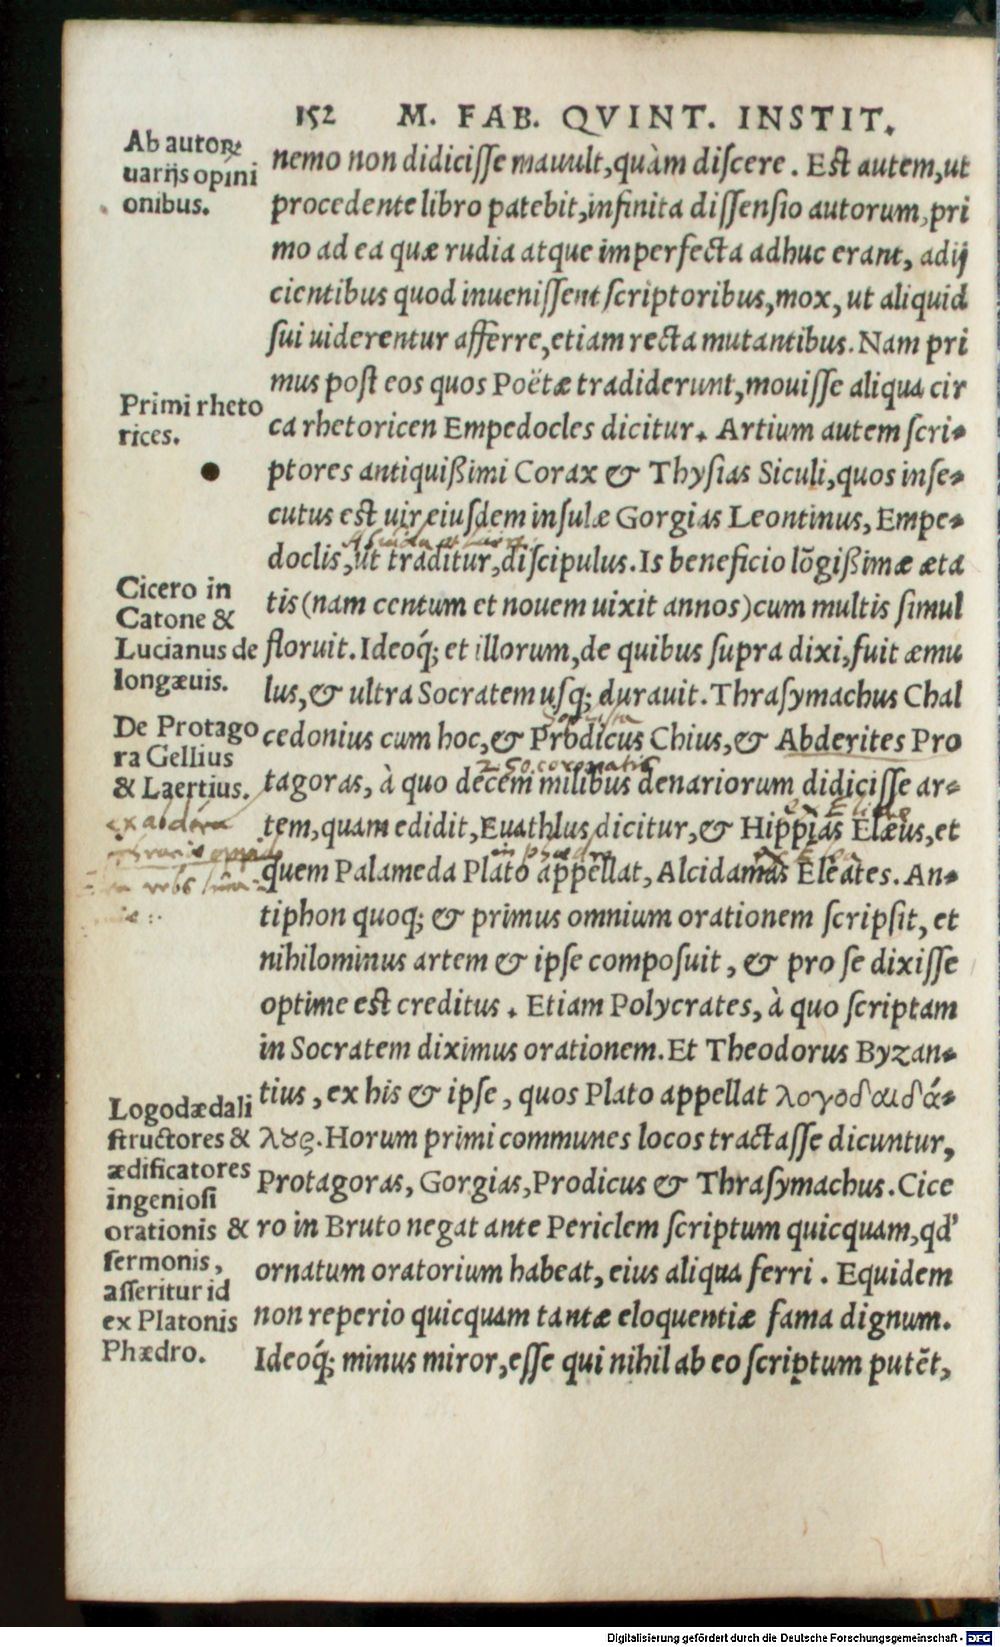 152 M. FAB. QVINT. INSTIT.
Ab autoꝝ
uarijs opini
onibus.
nemo non didicisse mauult, quàm discere. Est autem, ut
procedente libro patebit, infinita dissensio autorum, pri
mo ad ea quæ rudia atque imperfecta adhuc erant, adij
cientibus quod inuenissent scriptoribus, mox, ut aliquid
sui uiderentur afferre, etiam recta mutantibus. Nam pri
mus post eos quos Poëtæ tradiderunt, mouisse aliqua cir
Primi rheto
rices.
ca rhetoricen Empedocles dicitur. Artium autem scri-
ptores antiquißimi Corax & Thysias Siculi, quos inse-
cutus est uir eiusdem insulæ Gorgias Leontinus, Empe-
doclis, ut traditur, discipulus. Is beneficio lõgißimæ æta
Cicero in
Catone &
Lucianus de
longæuis.
tis (nam centum et nouem uixit annos) cum multis simul
floruit. Ideoq́; et illorum, de quibus supra dixi, fuit æmu
lus, & ultra Socratem usq; durauit. Thrasymachus Chal
sophista
De Protago
ra Gellius
& Laertius.
cedonius cum hoc, & Prodicus Chius, & Abderites Pro
250. coronatis
tagoras, à quo decem milibus denariorum didicisse ar-
ex Elide
ex abdera
tem, quam edidit, Euathlus dicitur, & Hippias Elæus, et
in phædro
ex Elea
quem Palameda Plato appellat, Alcidamas Eleates. An-
tiphon quoq; & primus omnium orationem scripsit, et
nihilominus artem & ipse composuit, & pro se dixisse
optime est creditus. Etiam Polycrates, à quo scriptam
in Socratem diximus orationem. Et Theodorus Byzan-
tius, ex his & ipse, quos Plato appellat λογοδαιδά-
Logodædali
structores &
ædificatores
ingeniosi
orationis &
sermonis,
asseritur id
ex Platonis
Phædro.
λȣς. Horum primi communes locos tractasse dicuntur,
Protagoras, Gorgias, Prodicus & Thrasymachus. Cice
ro in Bruto negat ante Periclem scriptum quicquam, qd'
ornatum oratorium habeat, eius aliqua ferri. Equidem
non reperio quicquam tantæ eloquentiæ fama dignum.
Ideoq́; minus miror, esse qui nihil ab eo scriptum putẽt,
Digitalisierung gefördert durch die Deutsche Forschungsgemeinschaft - DFG